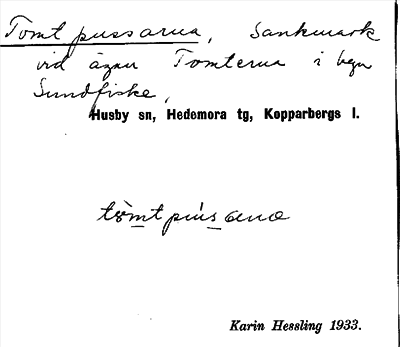 Tomtpussarna, Sankmark
vid ägan Tomterna i byn
Sundfiske,
Husby sn, Hedemora tg, Kopparbergs l.
tòmtpúsana
Karin Hessling 1933.